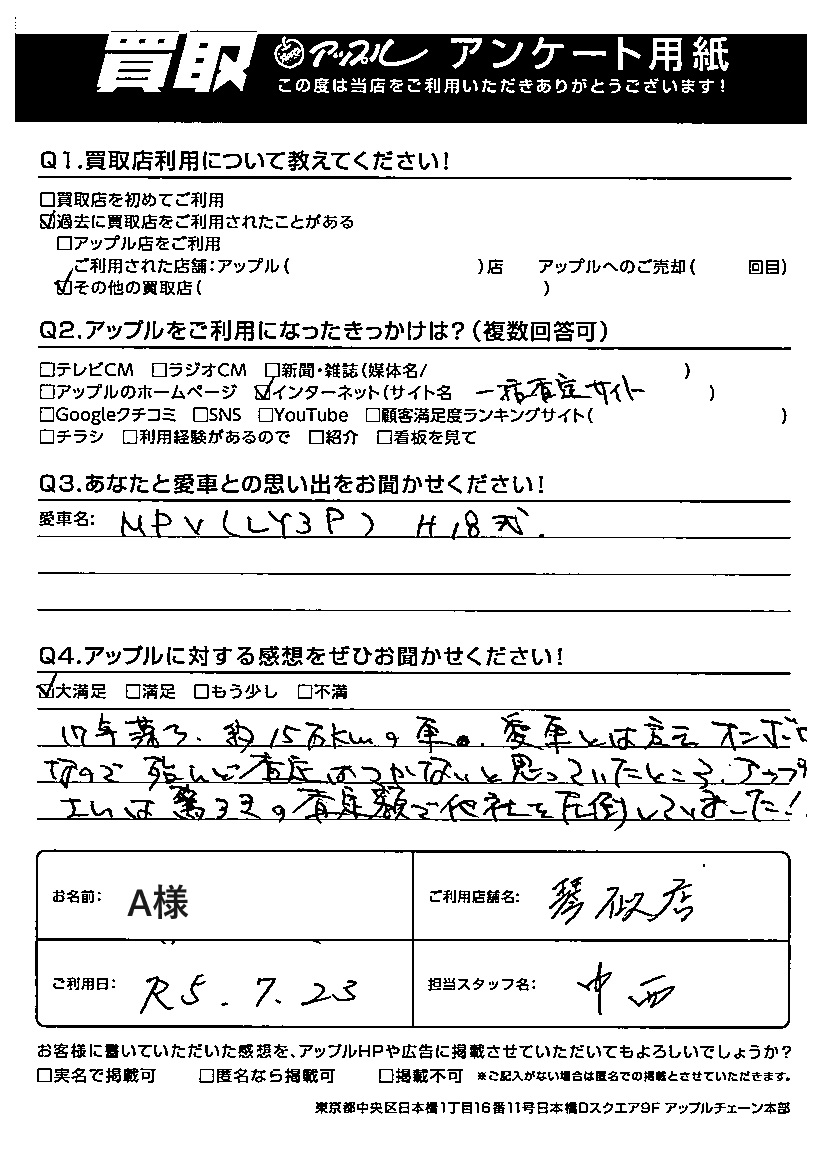 買取 アップル アンケート用紙
この度は当店をご利用いただきありがとうございます!
Q1.買取店利用について教えてください!
□買取店を初めてご利用
☑過去に買取店をご利用されたことがある
□アップル店をご利用
ご利用された店舗:アップル( )店 アップルへのご売却( 回目)
☑その他の買取店( )
Q2.アップルをご利用になったきっかけは?(複数回答可)
□テレビCM □ラジオCM □新聞・雑誌(媒体名/ )
□アップルのホームページ ☑インターネット(サイト名 一括査定サイト )
□Googleクチコミ □SNS □YouTube □顧客満足度ランキングサイト( )
□チラシ □利用経験があるので □紹介 □看板を見て
Q3.あなたと愛車との思い出をお聞かせください!
愛車名: MPV(LY3P) H18式.
Q4.アップルに対する感想をぜひお聞かせください!
☑大満足 □満足 □もう少し □不満
17年落ち、約15万kmの車。愛車とは言え オンボロ
なので 殆んど査定はつかないと思っていたところ、アップル
さんは驚きの査定額で他社を圧倒していました!
お名前: A様 ご利用店舗名: 琴似店
ご利用日: R5.7.23 担当スタッフ名: 中西
お客様に書いていただいた感想を、アップルHPや広告に掲載させていただいてもよろしいでしょうか?
□実名で掲載可 □匿名なら掲載可 □掲載不可 ※ご記入がない場合は匿名での掲載とさせていただきます。
東京都中央区日本橋1丁目16番11号日本橋Dスクエア9F アップルチェーン本部